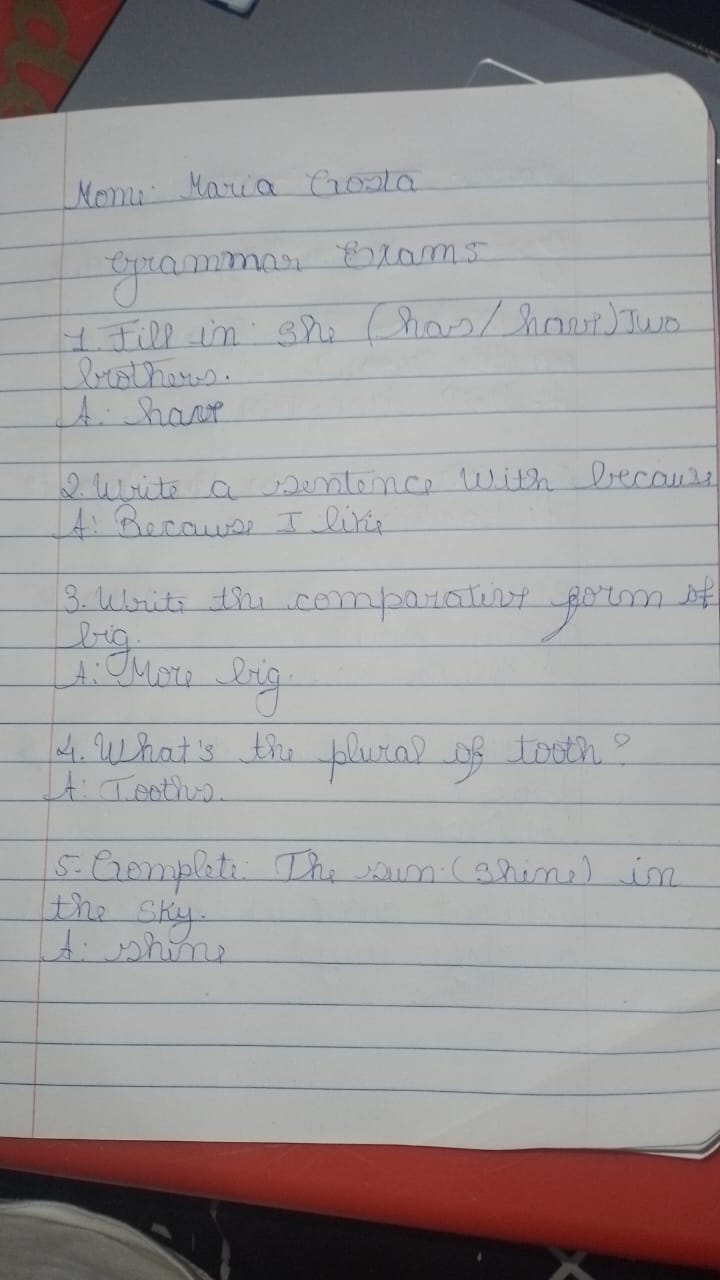 Nome: Maria Costa
Grammar Exams
1. Fill in: She (has/have) Two
brothers.
A: have
2. Write a sentence With because
A: Because I like
3. Write the comparative form of
big.
A: More big.
4. What's the plural of tooth?
A: Tooths.
5. Complete: The sun (shine) in
the sky.
A: shine